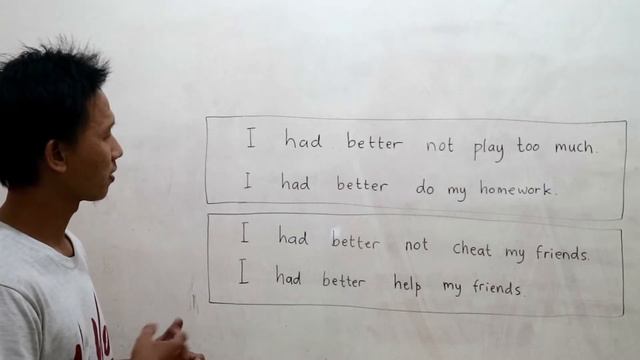 I had better not play too much.
I had better do my homework.
I had better not cheat my friends.
I had better help my friends.